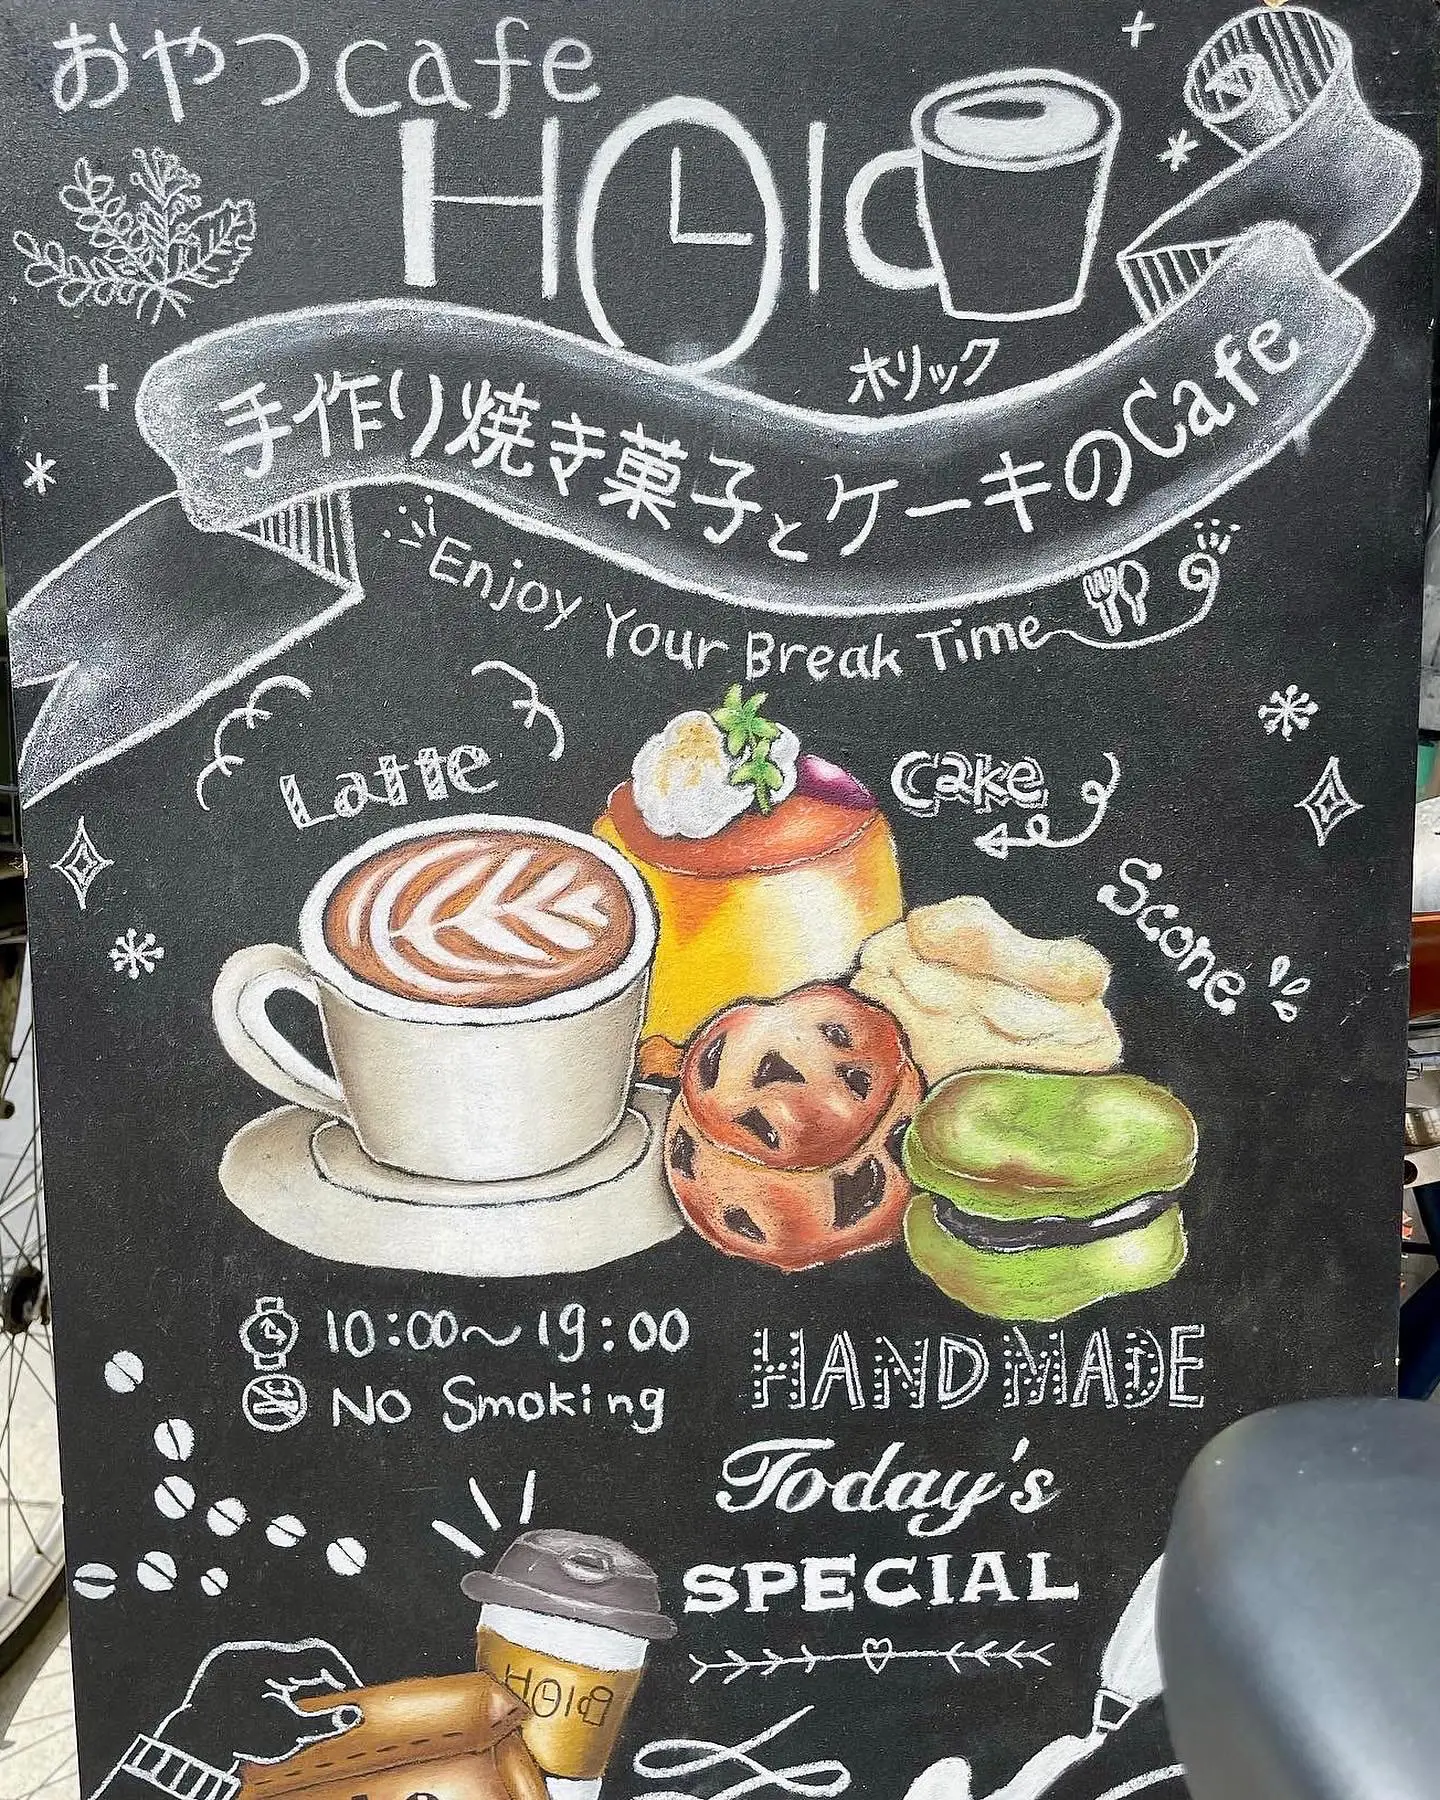 おやつcafe
HOlic
ホリック
手作り焼き菓子とケーキのCafe
Enjoy Your Break Time
Latte
Cake
Scone
10:00〜19:00
No Smoking
HANDMADE
Today's
SPECIAL
HOlic